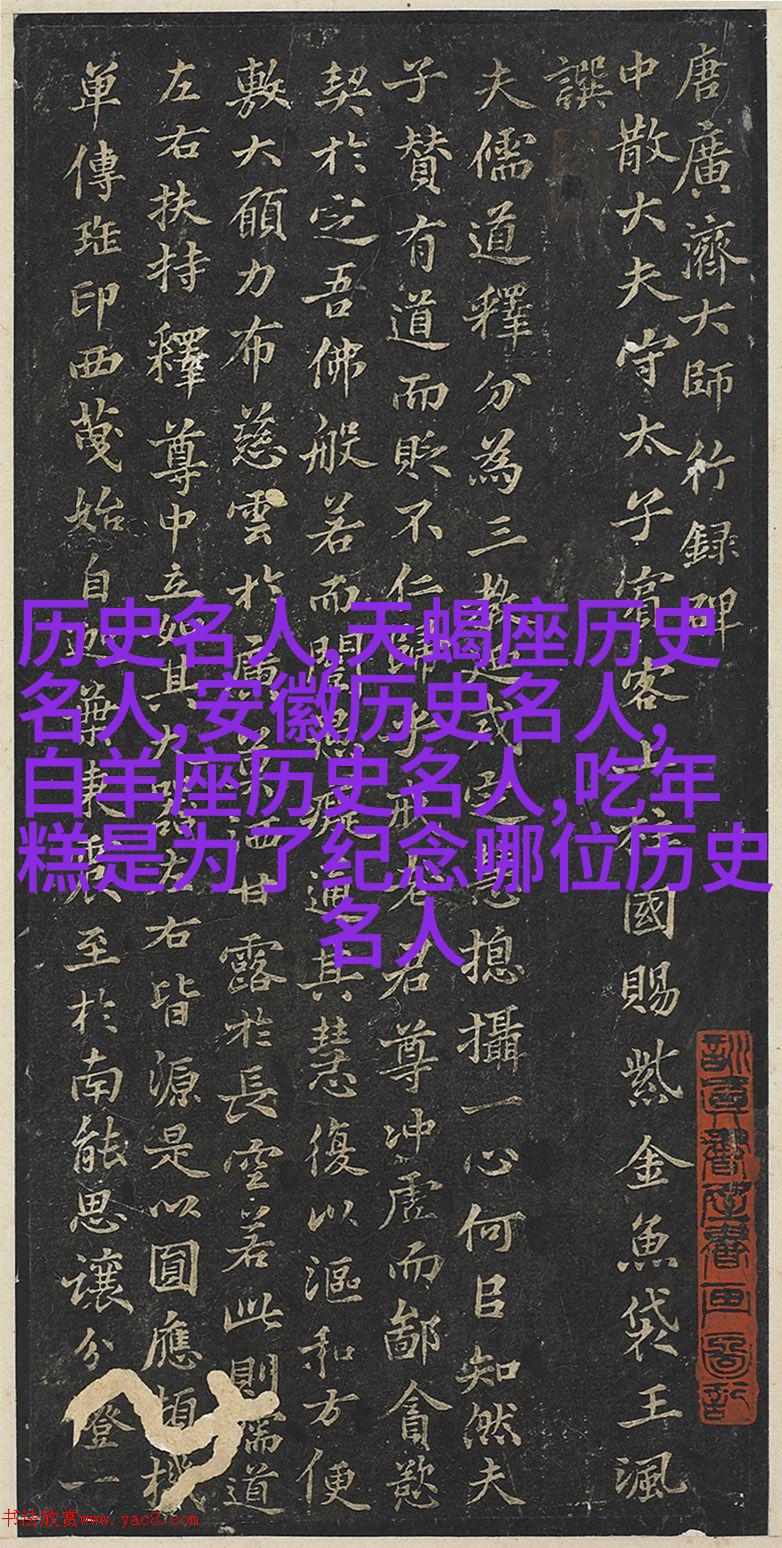 唐廣濟大師行録碑
中散大夫守太子賓客上柱國賜紫金魚袋王渢
譔
夫儒道釋分為三揔攝一心何知然夫
子賛有道而貶不仁君尊冲虛而鄙貪慾
契於定吾佛般若而通其慧復以漚和方便
敷大願力布慈雲於甘露於長空若此則儒道
左右扶持釋尊中立如其左右皆源是以圓應頓機
單傳印西始自至於南能思讓分燈一
历史名人,天蝎座历史
名人,安徽历史名人,
白羊座历史名人,吃年
糕是为了纪念哪位历史
名人
书法欣赏www.yac8.com